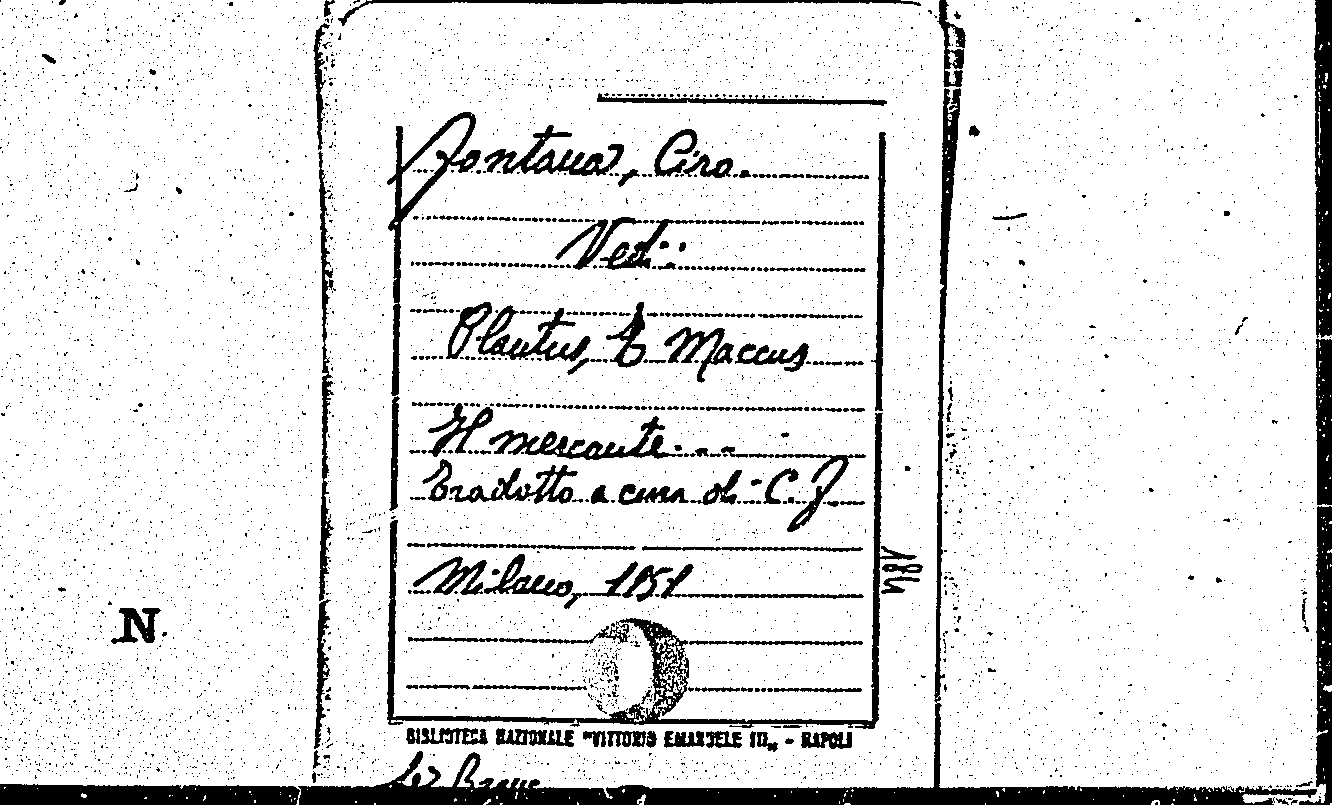 Fontana, Ciro.
Vedi:
Plautus, T Maccus
Il mercante...
Tradotto a cura di C. F.
Milano, 1951
N
BIBLIOTECA NAZIONALE "VITTORIO EMANUELE III„ - NAPOLI